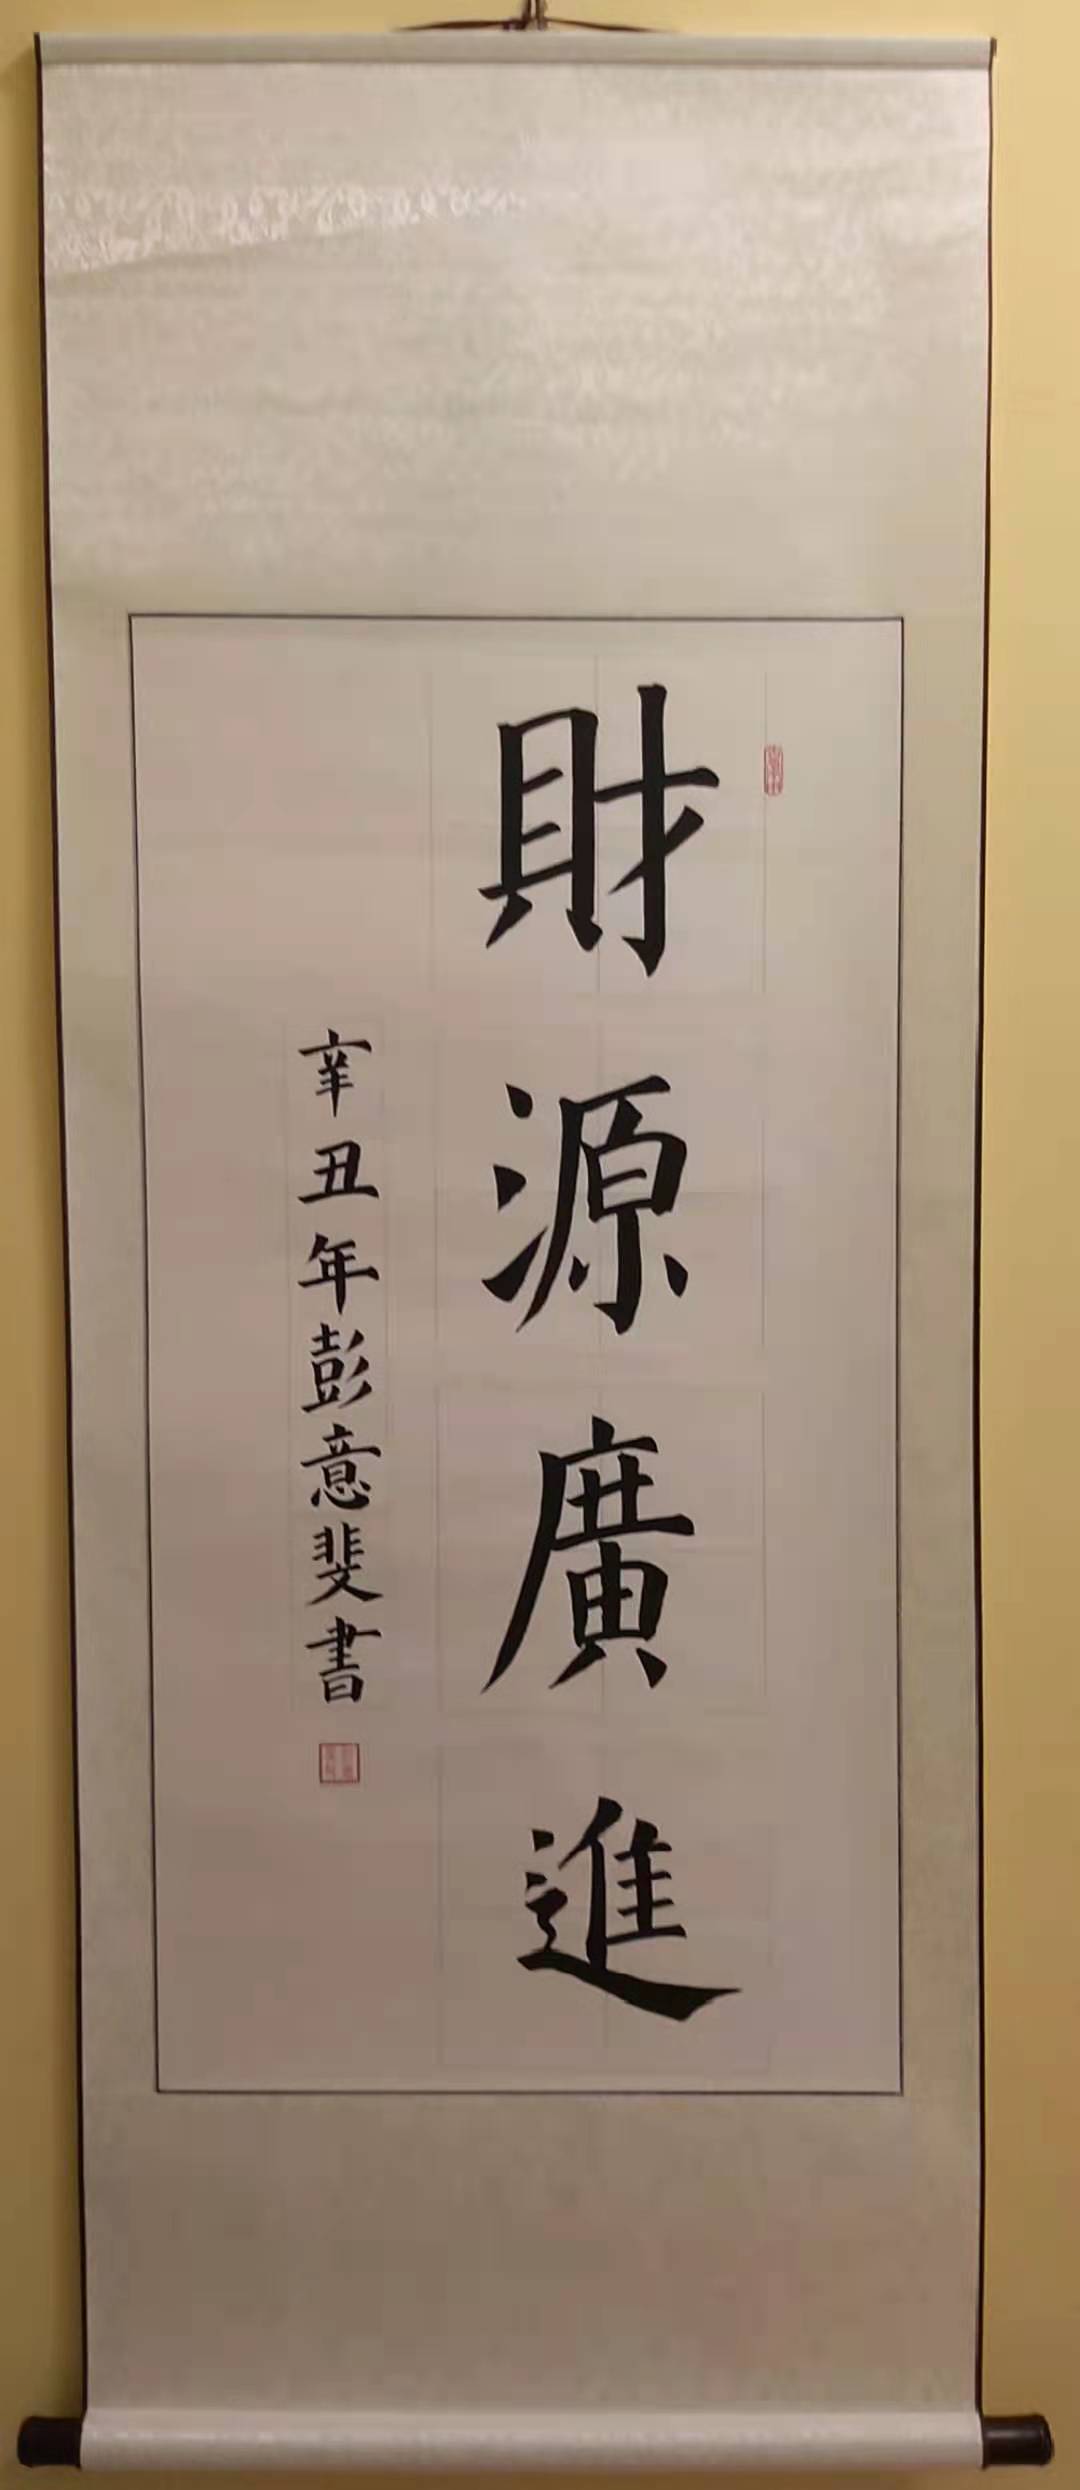 財源廣進
辛丑年彭意斐書